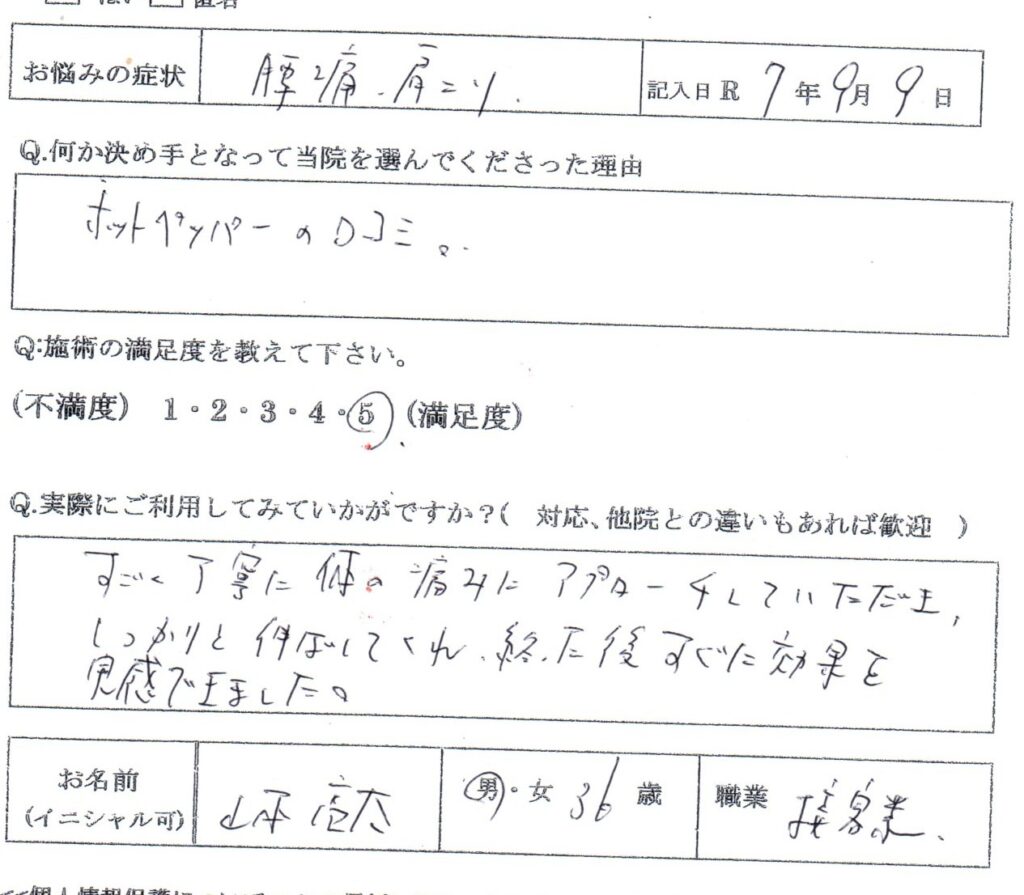 はい 匿名
お悩みの症状 腰痛、肩こり、 記入日 R 7年 9月 9日
Q.何か決め手となって当院を選んでくださった理由
ホットペッパーの口コミ。
Q:施術の満足度を教えて下さい。
(不満度) 1・2・3・4・5 (満足度)
Q.実際にご利用してみていかがですか?( 対応、他院との違いもあれば歓迎 )
すごく丁寧に体の痛みにアプローチしていただき、
しっかりと伸ばしてくれ、終った後すぐに効果を
実感できました。
お名前
(イニシャル可) 山本 男・女 36 歳 職業 接客業、